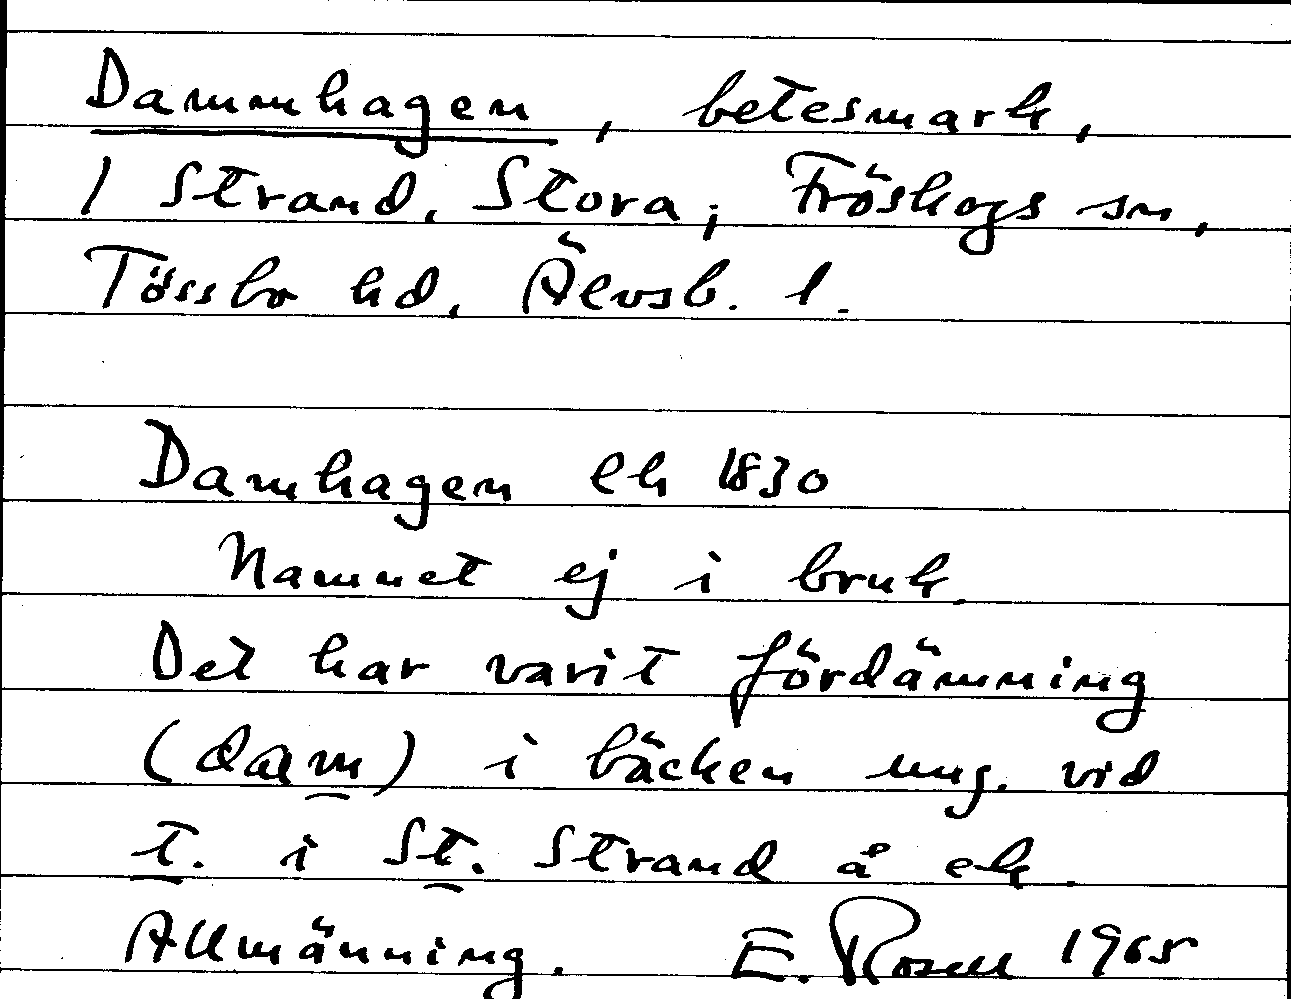 Dammhagen, betesmark,
1 Strand, Stora; Fröskogs sn,
Tössbo hd, Älvsb. l.
Damhagen Ek 1830
Namnet ej i bruk.
Det har varit fördämning
(dam) i bäcken ung. vid
t. i St. Strand å ek.
Allmänning. E. Rosell 1965